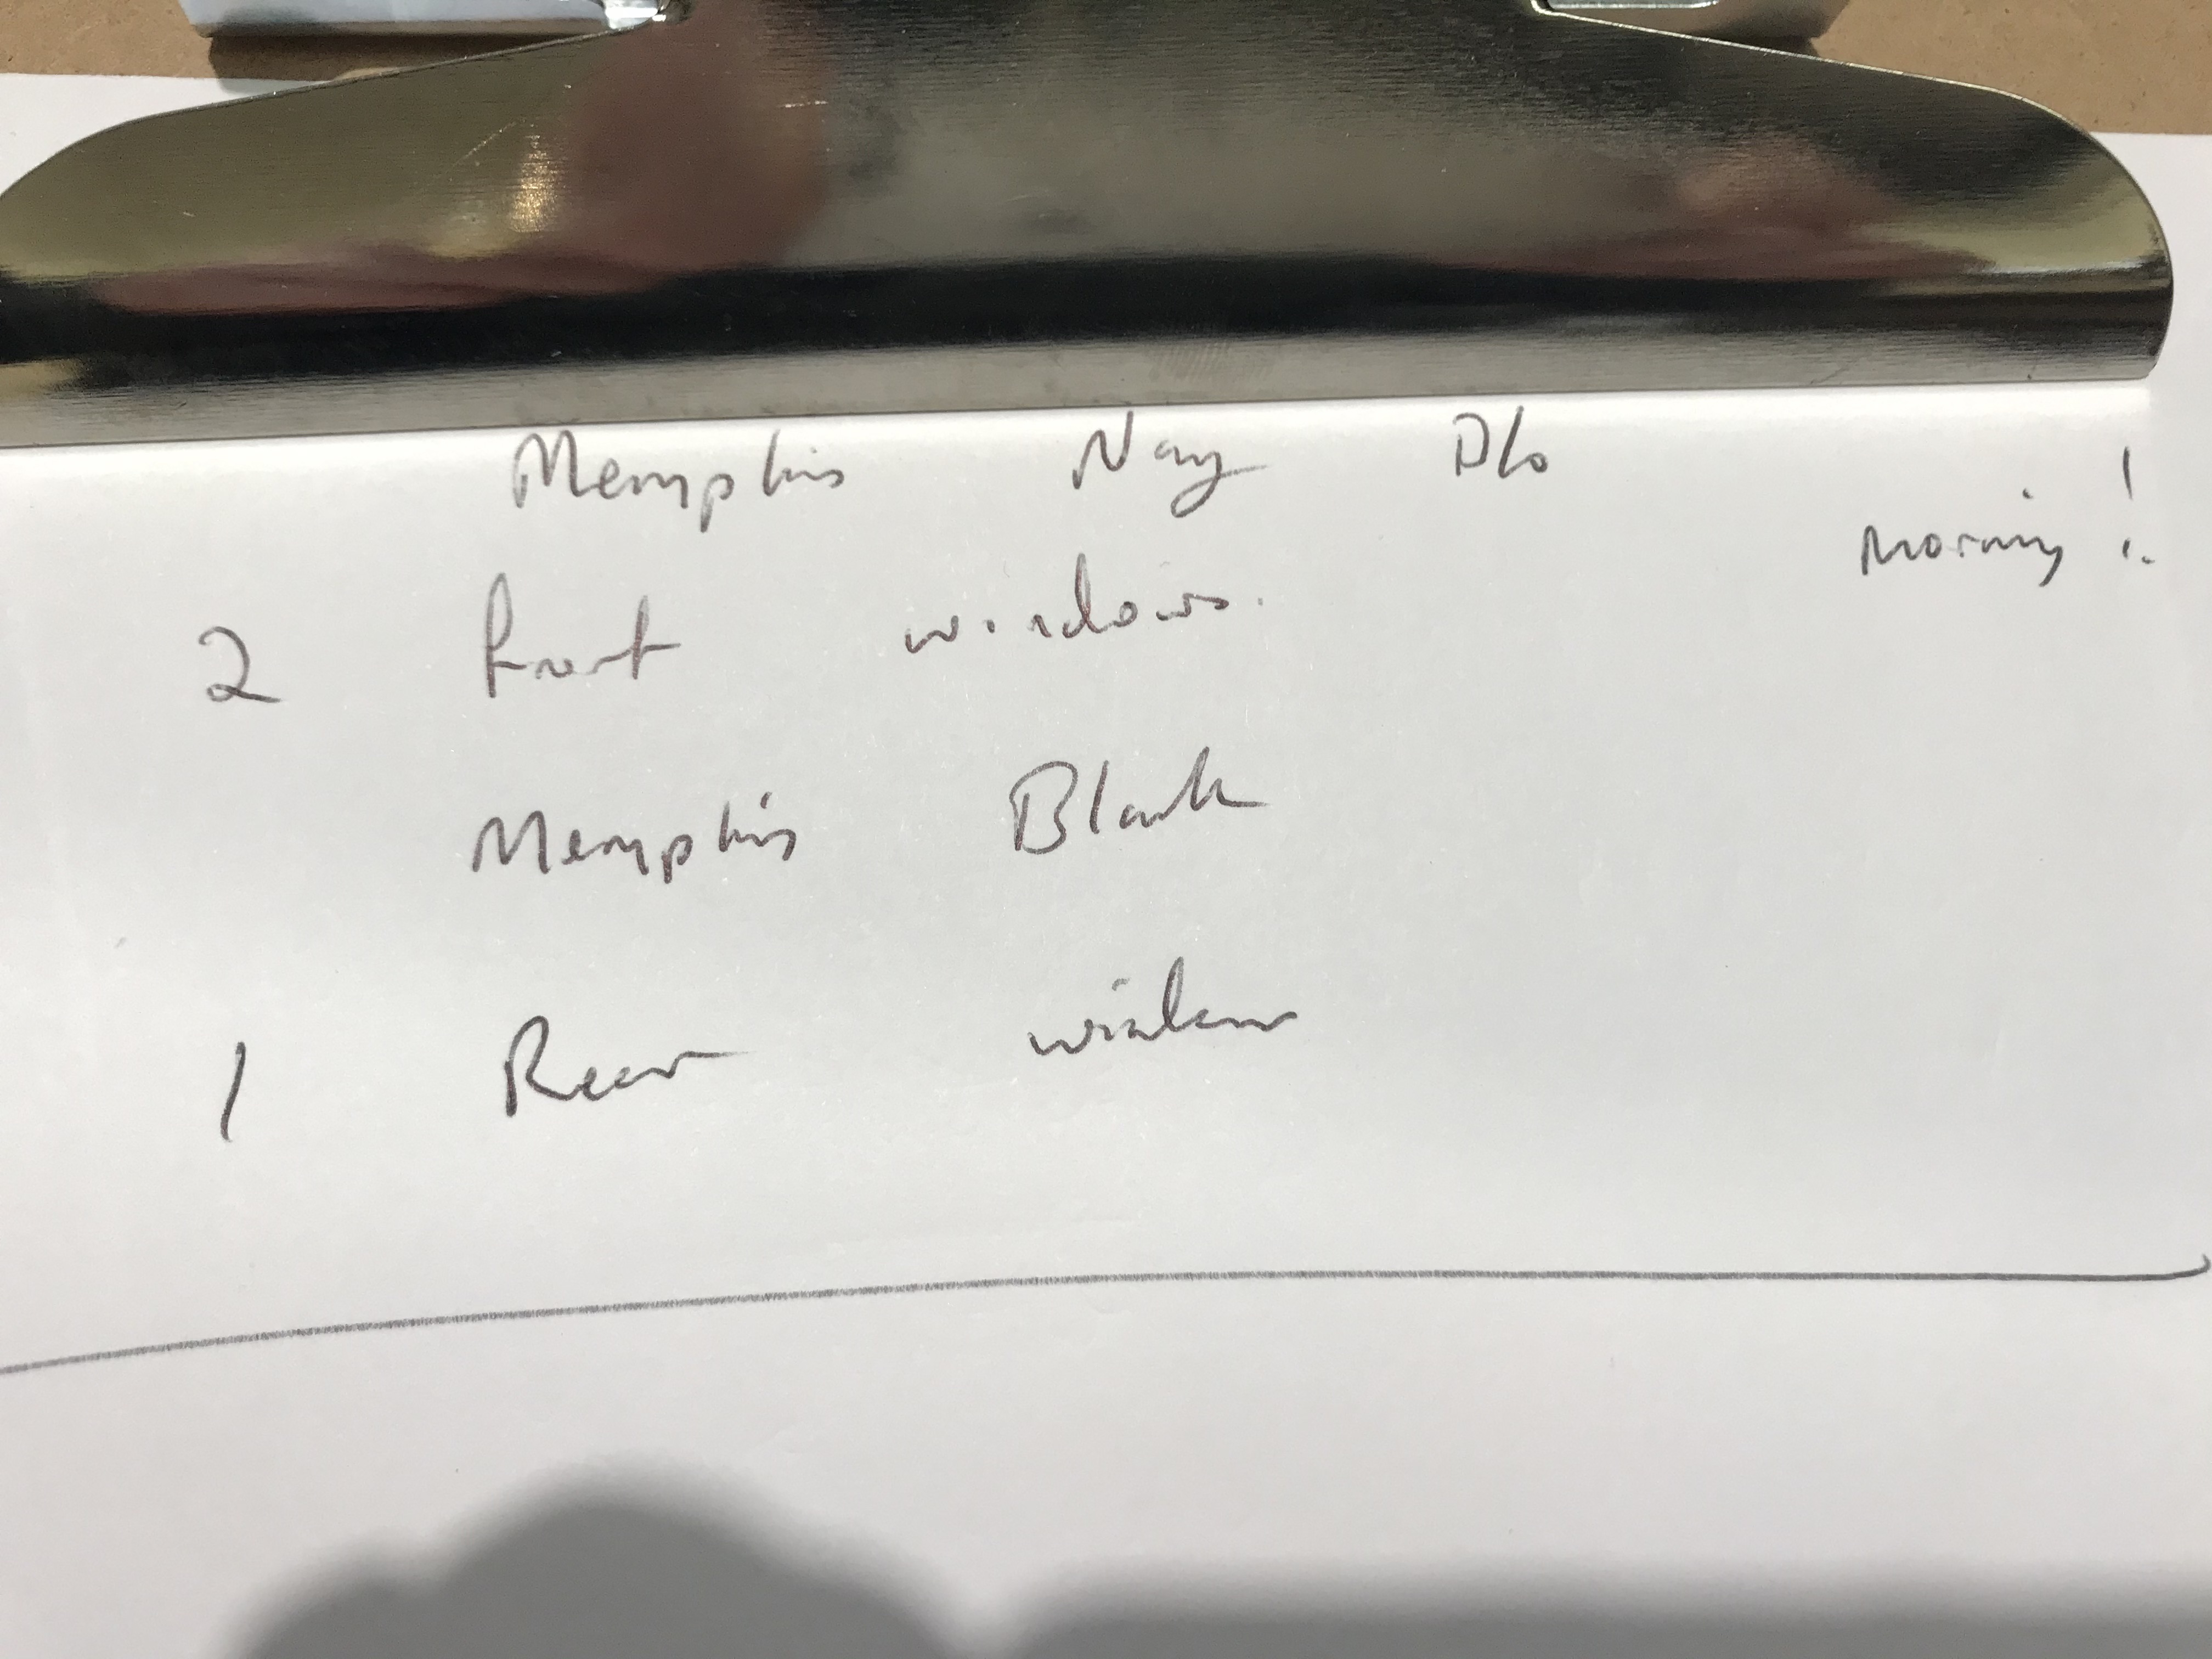 Memphis Navy Blo
Morning !
2 front windows.
Memphis Blank
1 Rear window